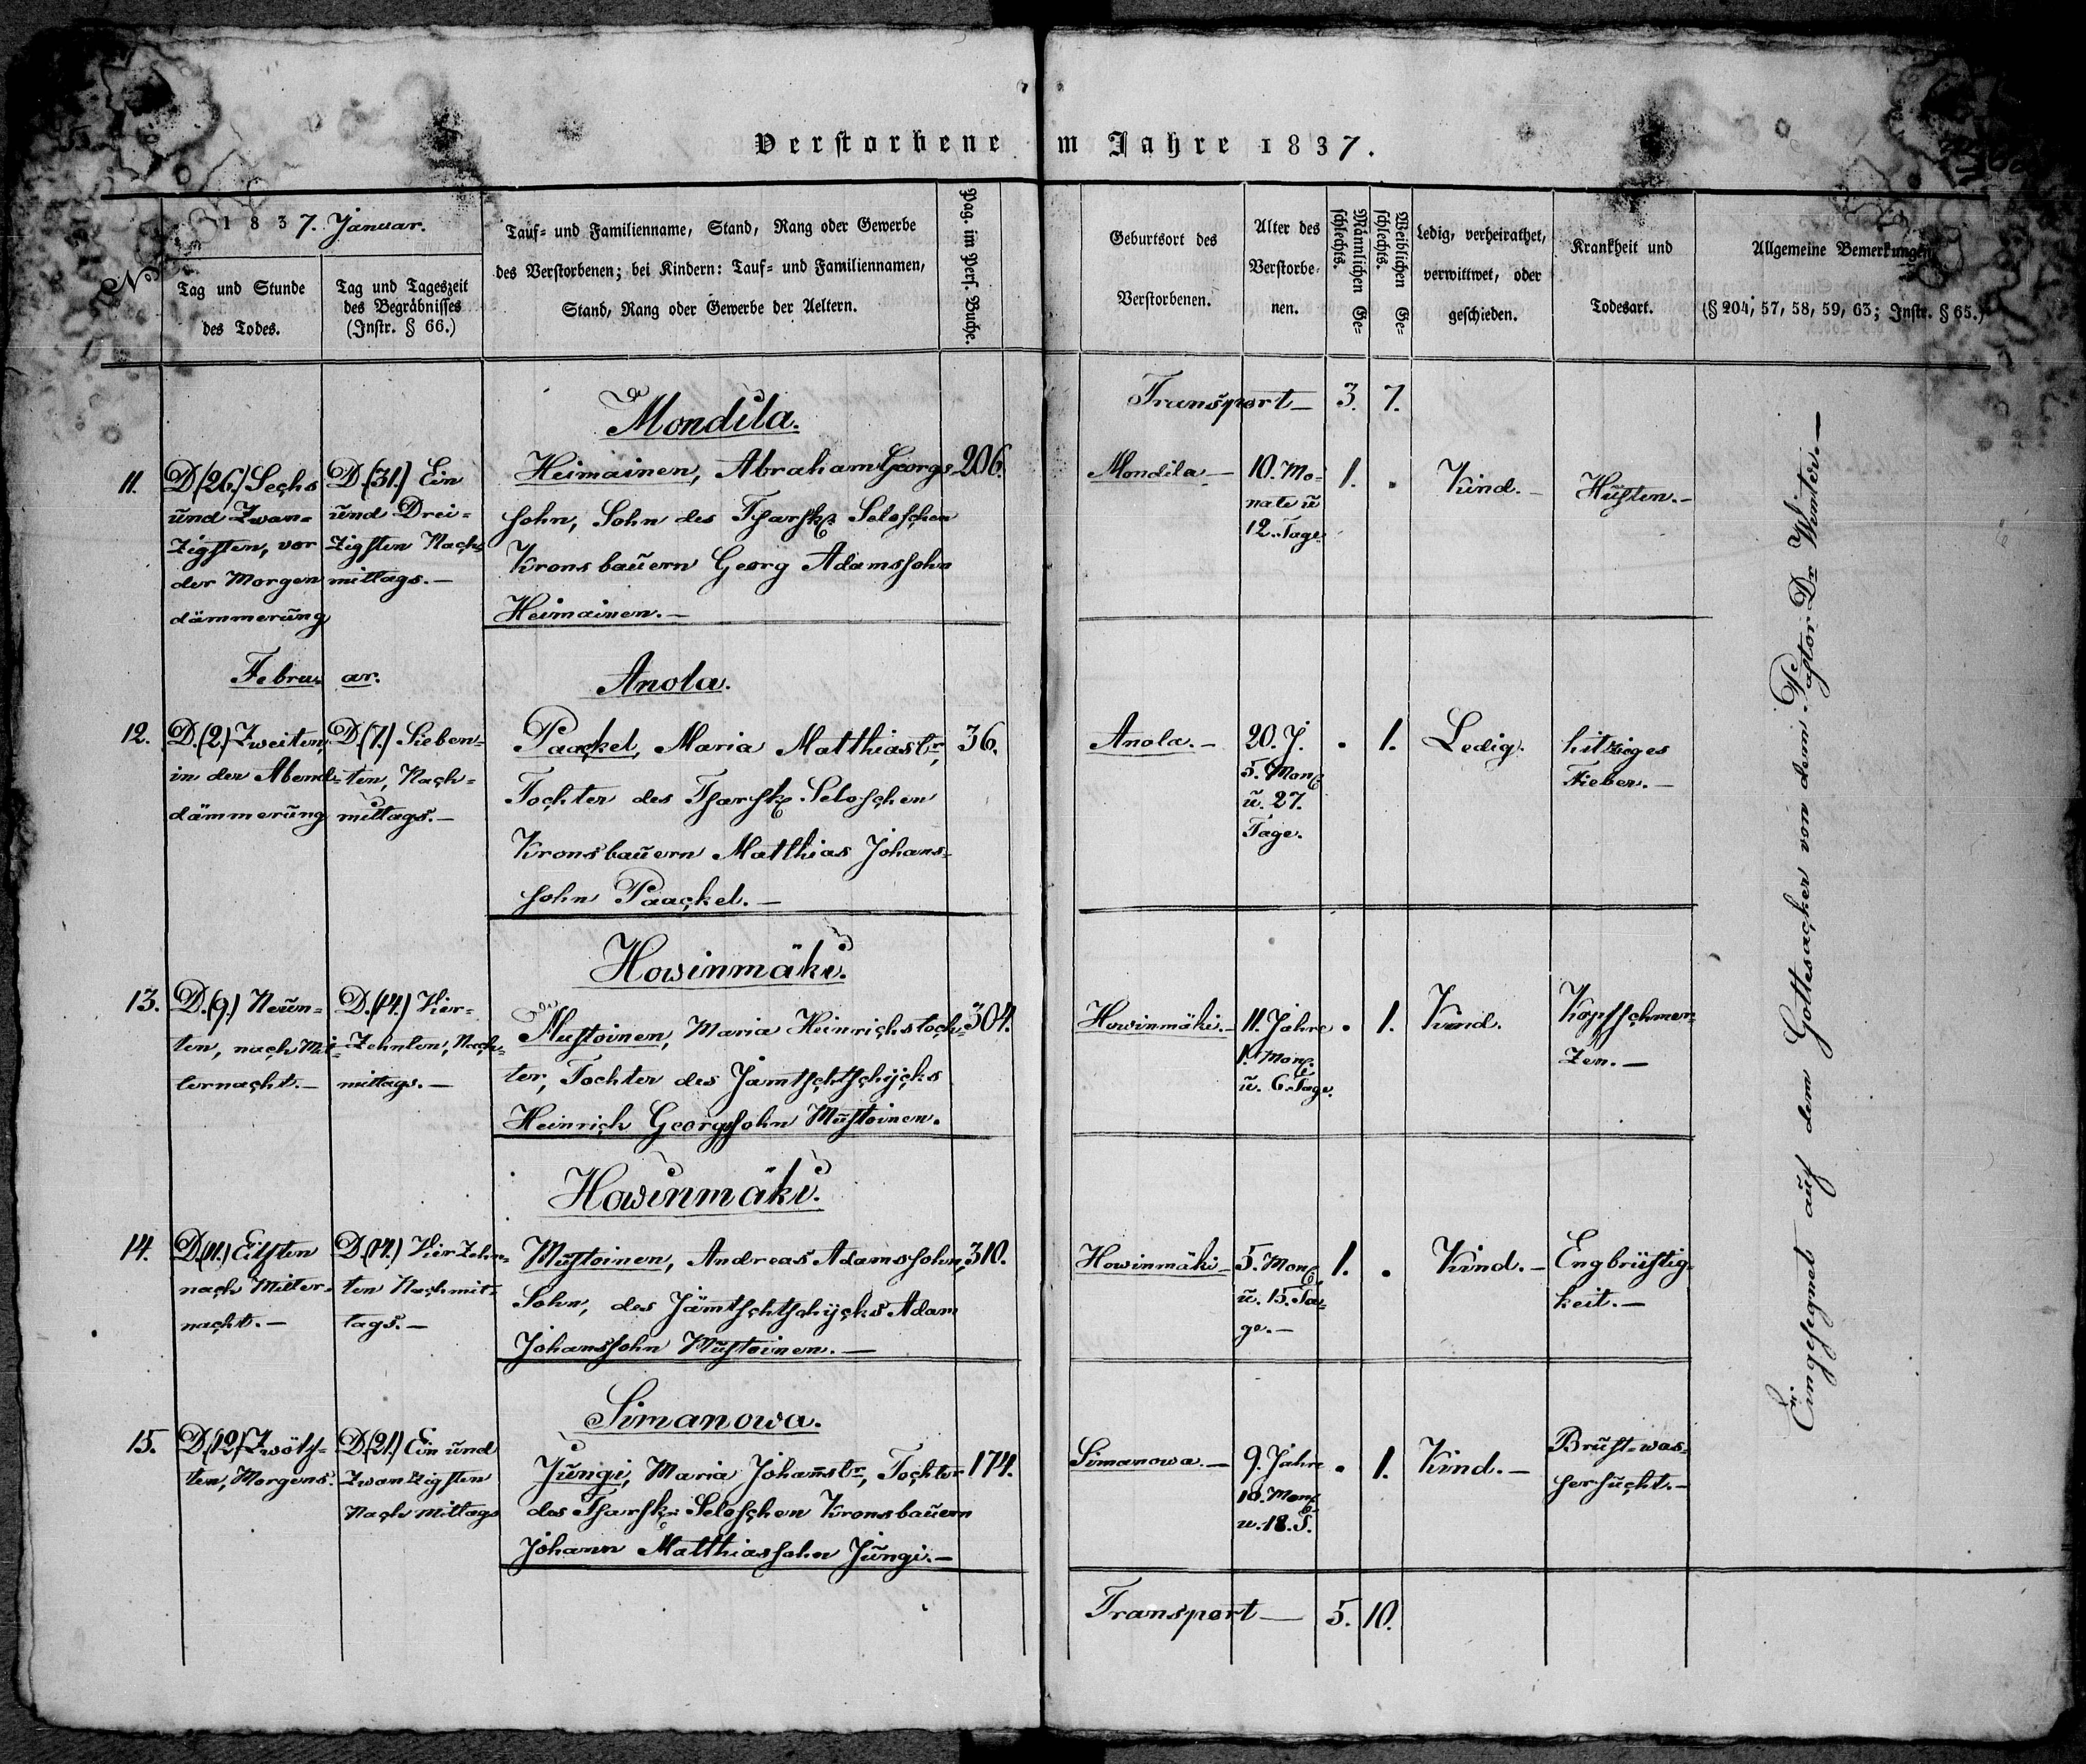 Verstorbene im Jahre 1837.
No
1837. Januar.
Tag und Stunde
des Todes.
Tag und Tageszeit
des Begräbnisses
(Instr. § 66.)
Tauf- und Familienname, Stand, Rang oder Gewerbe
des Verstorbenen; bei Kindern: Tauf- und Familiennamen,
Stand, Rang oder Gewerbe der Aeltern.
Pag. im Pers. Buche.
Geburtsort des
Verstorbenen.
Alter des
Verstorbe-
nen.
Männlichen Ge-
schlechts.
Weiblichen Ge-
schlechts.
Ledig, verheirathet,
verwittwet, oder
geschieden.
Krankheit und
Todesart.
Allgemeine Bemerkungen
(§ 204, 57, 58, 59, 63; Instr. § 65.)
Transport— 3. 7.
Mondila.
11.
D.(26.) Sechs
und Zwan-
zigsten, vor
der Morgen
dämmerung
D.(31.) Ein
und Drei-
zigsten Nach-
mittags.—
Heimainen, Abraham Georgs-
sohn, Sohn des Tsarsk. Seloschen
Kronsbauern Georg Adamssohn
Heimainen.—
206.
Mondila.—
10. Mo-
nate u
12. Tage
1. .
Kind.—
Husten.—
Februar.
Anola.
12.
D.(2.) Zweiten,
in der Abend-
dämmerung
D.(7.) Sieben-
ten, Nach-
mittags.—
Paackel, Maria Matthiastr,
Tochter des Tsarsk. Seloschen
Kronsbauern Matthias Johans-
sohn Paackel.—
36.
Anola.—
20. J.
5. Mon
u. 27.
Tage.
. 1.
Ledig.
hitziges
Fieber.—
Howinmäki.
13.
D.(9.) Neun-
ten, nach Mit-
ternacht.—
D.(14.) Vier-
zehnten, Nach-
mittags.—
Mustoinen, Maria Heinrichstoch-
ter, Tochter des Jamtschtschijcks
Heinrich Georgssohn Mustoinen.
304.
Howinmäki.—
11. Jahre
1. Mon.
u. 6. Tage.
. 1.
Kind.
Kopfschmer-
zen.—
Howinmäki.
14.
D.(11.) Eilften
nach Mitter-
nacht.—
D.(14.) Vierzehn-
ten Nachmit-
tags.—
Mustoinen, Andreas Adamssohn,
Sohn, des Jämtschtschijcks Adam
Johanssohn Mustoinen.—
310.
Howinmäki—
5. Mon
u. 15. Ta-
ge.—
1. .
Kind.—
Engbrüstig-
keit.—
Simanowa.
15.
D.(12.) Zwölf-
ten, Morgens.
D.(21.) Ein und
Zwanzigsten
Nachmittags
Jungi, Maria Johanstr, Tochter
des Tsarsk. Seloschen Kronsbauern
Johann Matthiassohn Jungi.—
174.
Simanowa.—
9. Jahre
10. Mon
u. 18. T.
. 1.
Kind.—
Brust-was-
sersucht.—
Transport— 5. 10.
Eingesegnet auf dem Gottesacker von dem Pastor Dr Winter.—